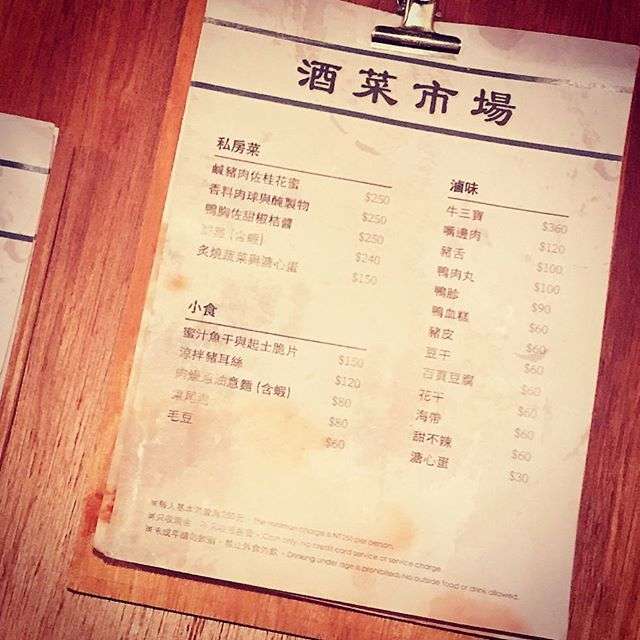 酒菜市場
私房菜
鹹豬肉佐桂花蜜 $250
香料肉球與醃製物 $250
鴨胸佐甜椒桔醬 $250
(含蝦) $240
炙燒蔬菜與溏心蛋 $150
小食
蜜汁魚干與起士脆片 $150
涼拌豬耳絲 $120
意麵 (含蝦) $80
$80
毛豆 $60
滷味
牛三寶 $360
嘴邊肉 $120
豬舌 $100
鴨肉丸 $100
鴨胗 $90
鴨血糕 $60
豬皮 $60
豆干 $60
百頁豆腐 $60
花干 $60
海帶 $60
甜不辣 $60
溏心蛋 $30
※每人基本消費為250元。The minimum charge is NT250 per person.
Cash only, no credit card service or service charge.
※未成年請勿飲酒,禁止外食外飲。Drinking under age is prohibited. No outside food or drink allowed.